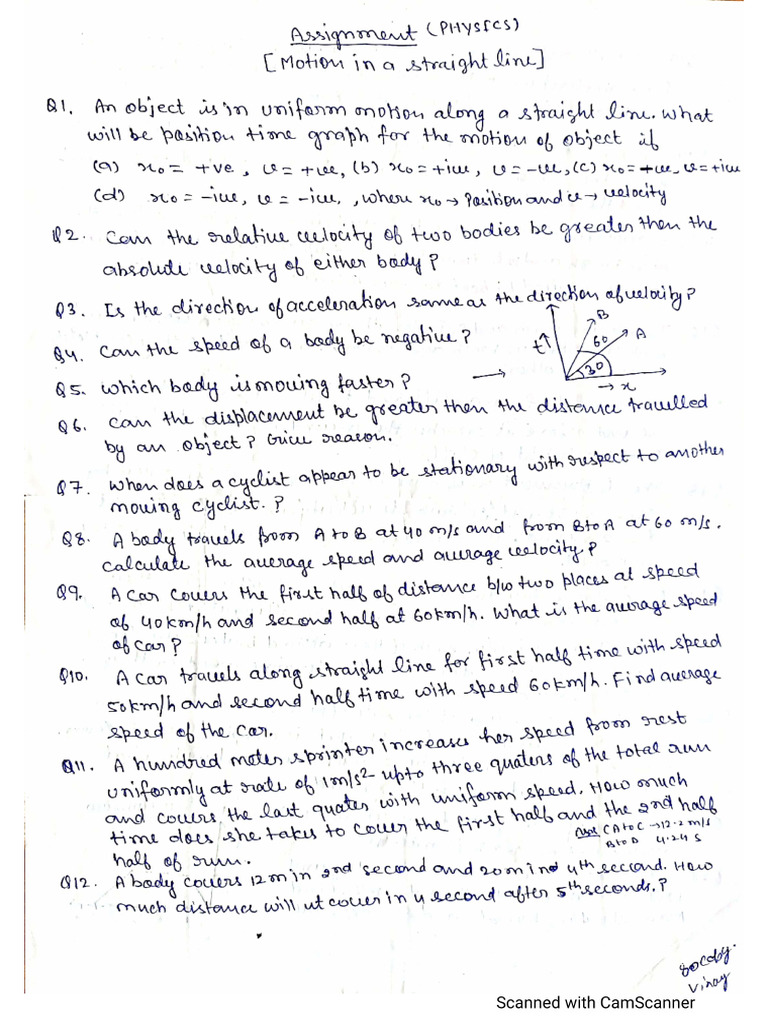 Assignment (PHYSICS)
[Motion in a straight line]
Q1. An object is in uniform motion along a straight line. What
will be position time graph for the motion of object if
(a) x₀ = +ve, v = +ve, (b) x₀ = +ive, v = -ve, (c) x₀ = -ive, v = +ive
(d) x₀ = -ive, v = -ive, , where x₀ → Position and v → velocity
Q2. Can the relative velocity of two bodies be greater then the
absolute velocity of either body?
Q3. Is the direction of acceleration same as the direction of velocity?
Q4. Can the speed of a body be negative?
Q5. Which body is moving faster? →
t↑ B 60 A 30 → x
Q6. Can the displacement be greater then the distance travelled
by an object? Give reason.
Q7. When does a cyclist appear to be stationary with respect to another
moving cyclist.?
Q8. A body travels from A to B at 40 m/s and from B to A at 60 m/s.
calculate the average speed and average velocity?
Q9. A car covers the first half of distance b/w two places at speed
of 40km/h and second half at 60km/h. What is the average speed
of car?
Q10. A car travels along straight line for first half time with speed
50km/h and second half time with speed 60km/h. Find average
speed of the car.
Q11. A hundred meter sprinter increases her speed from rest
uniformly at rate of 1m/s² upto three quaters of the total run
and covers the last quater with uniform speed. How much
time does she takes to cover the first half and the 2nd half
half of run.
Ans CA to C → 12.2 m/s
B to D 4.24 s
Q12. A body covers 12m in 2nd second and 20m in 4th second. How
much distance will it cover in 4 second after 5th seconds.?
Vinay
Scanned with CamScanner